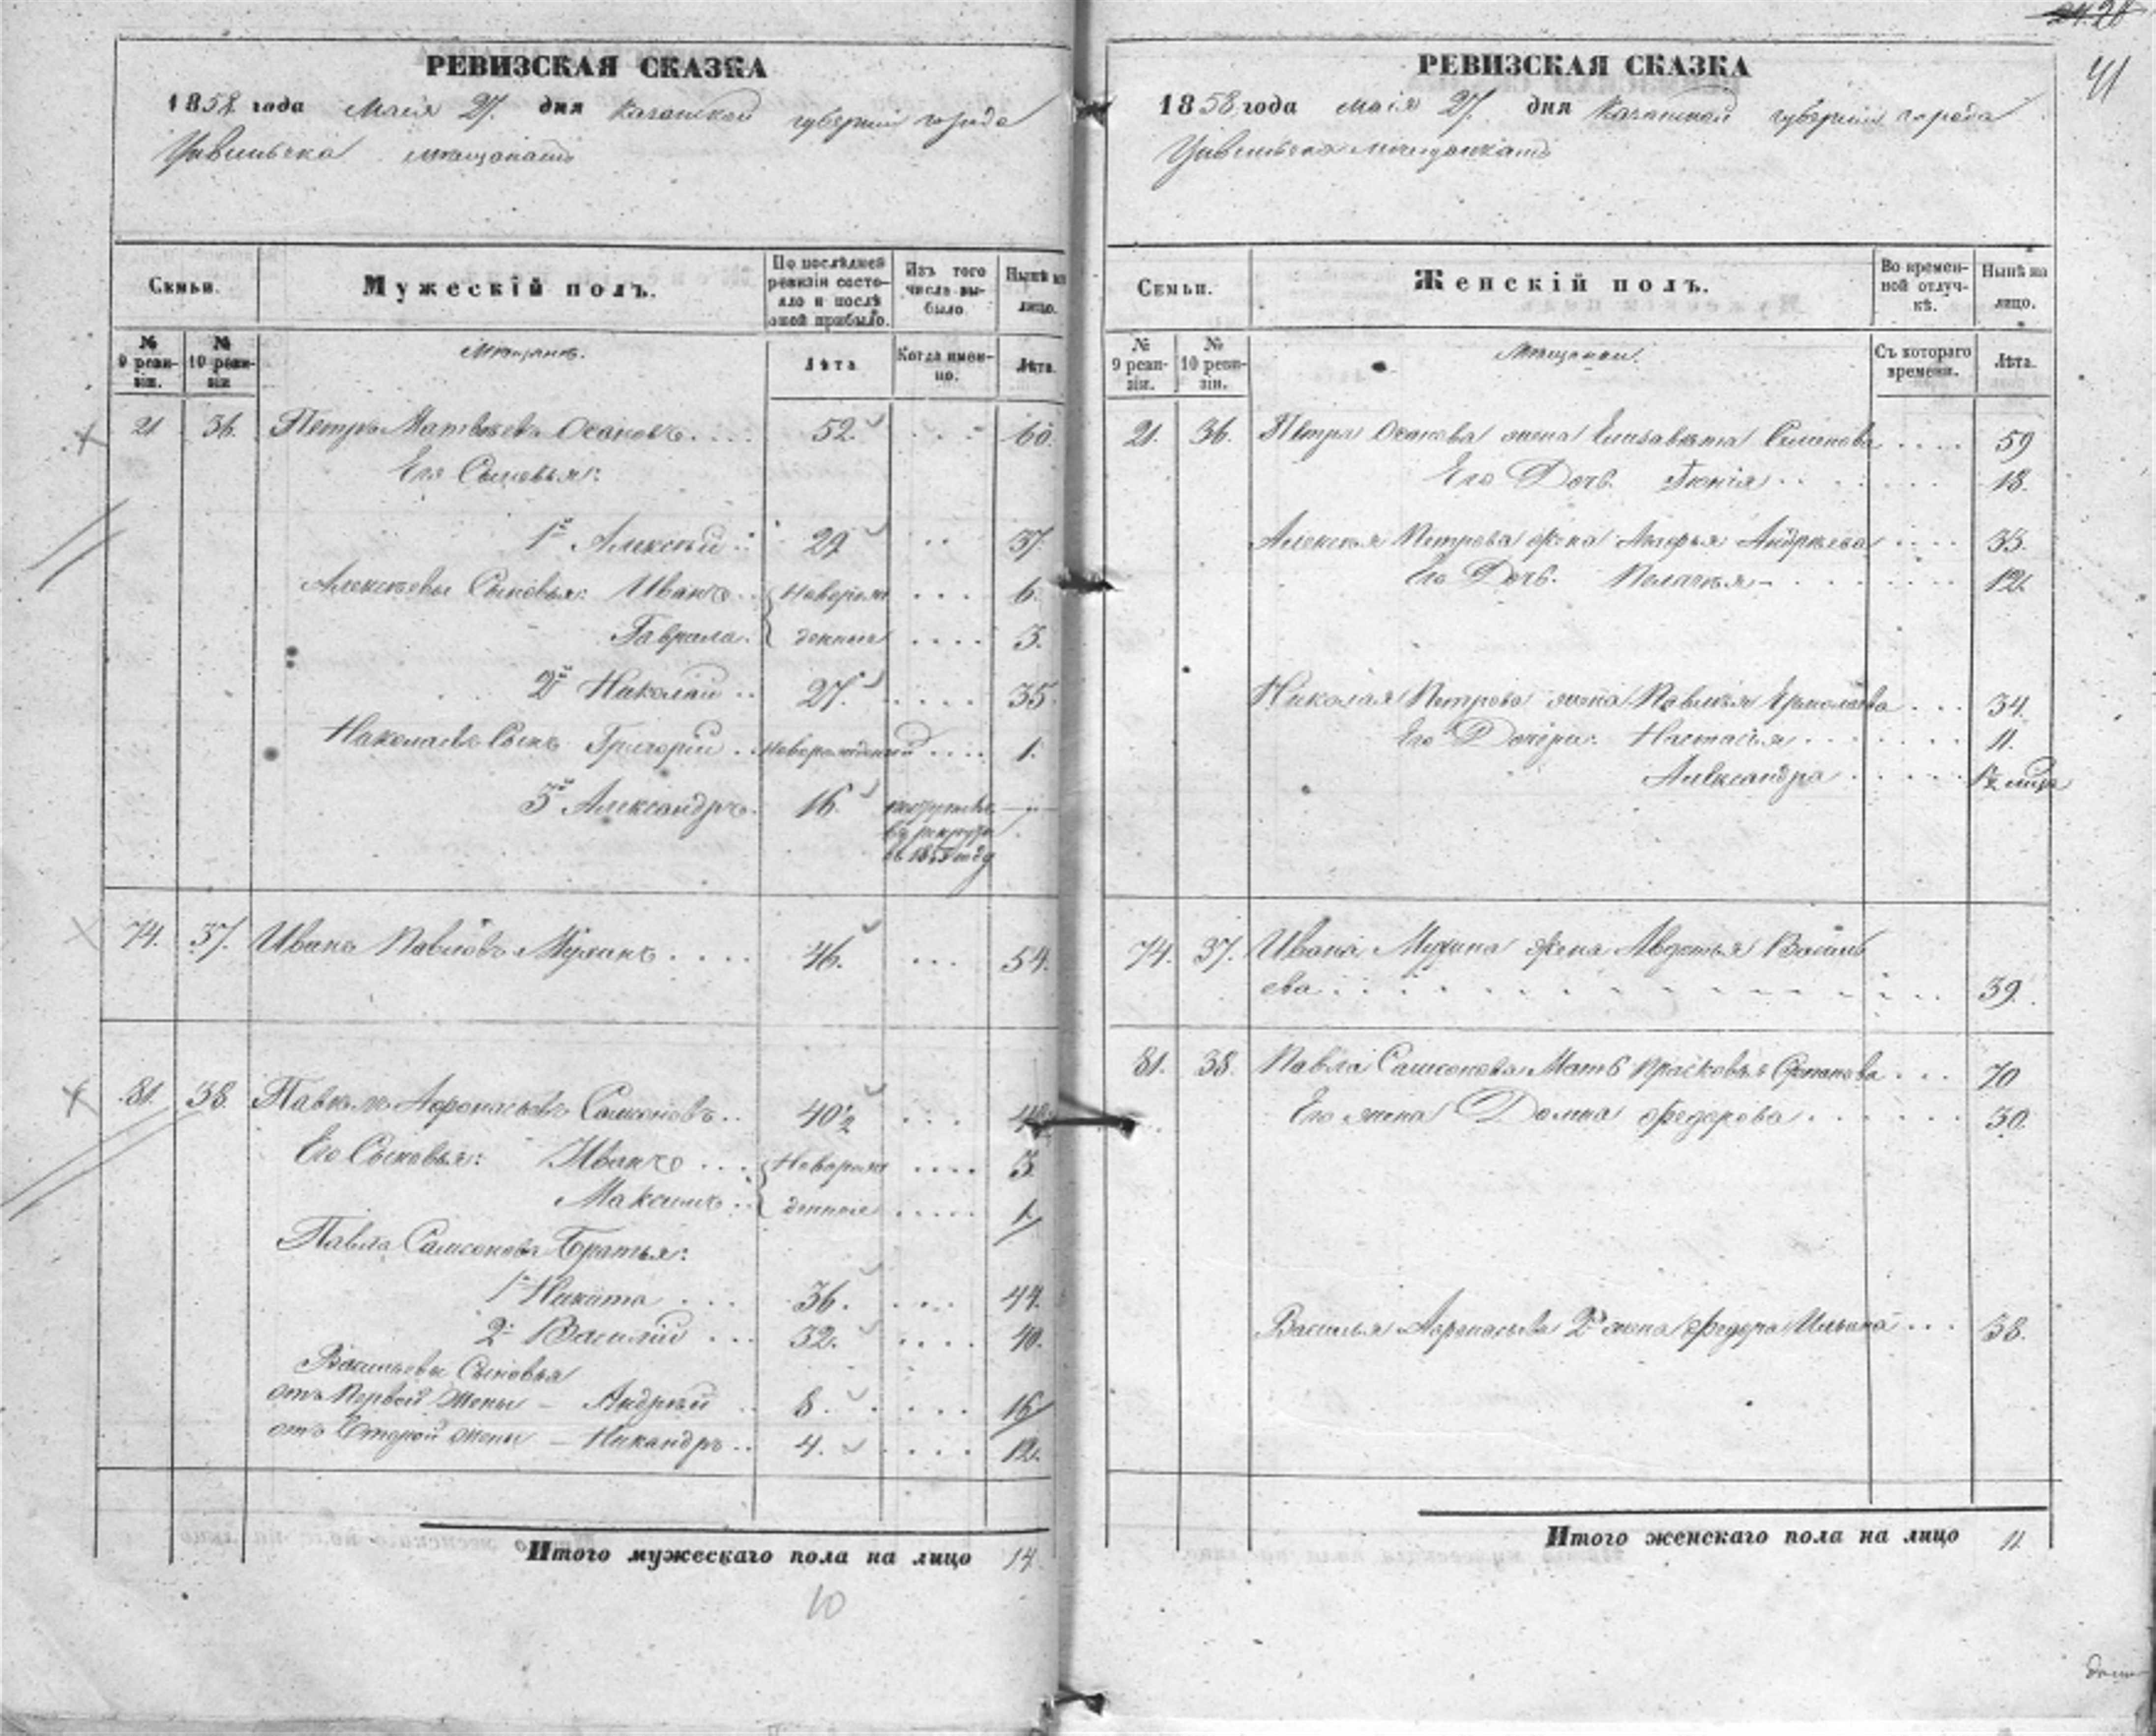 РЕВИЗСКАЯ СКАЗКА
1858 года Маія 27. дня Казанской губерніи города
Цивильска мѣщанамъ
Семьи.
Мужескій полъ.
По послѣдней ревизіи состояло и послѣ оной прибыло.
Изъ того числа выбыло.
Нынѣ на лицо.
№ 9 ревизіи.
№ 10 ревизіи
Мѣщанъ.
Лѣта
Когда именно.
Лѣта.
21 36. Петръ Матвѣевъ Осановъ.... 52. ... 60.
Его Сыновья:
1й Алексѣй.. 29 .. 37.
Алексѣевы Сыновья: Иванъ.. Новорож ... 6.
Гаврила. денные .... 3.
2й Николай .. 27. .... 35.
Николаевъ Сынъ Григорій . Новорожденный .... 1.
3й Александръ. 16. поступилъ — " —
въ рекруты
въ 185 году
74. 37. Иванъ Павловъ Мухинъ .... 46. ... 54.
81. 38. Павелъ Афонасьевъ Самсоновъ.. 40½ ... 48.
Его Сыновья: Иванъ ... Новорож .... 3.
Максимъ.. денные ..... 1.
Павла Самсонова Братья:
1й Никита ... 36. .... 44.
2й Василій ... 32. .... 40.
Васильевы Сыновья
отъ Первой Жены — Андрей .. 8. .... 16
отъ Второй жены — Никандръ.. 4. .... 12.
Итого мужескаго пола на лицо 14.
10
41
РЕВИЗСКАЯ СКАЗКА
1858 года маія 27. дня Казанской губерніи города
Цивильска мѣщанкамъ
Семьи.
Женскій полъ.
Во временной отлучкѣ.
Нынѣ на лицо.
№ 9 ревизіи.
№ 10 ревизіи.
Мѣщанки.
Съ котораго времени.
Лѣта.
21. 36. Петра Осанова жена Елизавета Семенова .... 59
Его Дочь. .... 18.
Алексѣя Петрова жена Марфья Андрѣева .... 33.
Его Дочь. Пелагея — .... 12.
Николая Петрова жена Павлея Ермолаева ... 34.
Его Дочери: Настасья .... 11.
Александра ....
74. 37. Ивана Мухина жена Авдотья Василь
ева .... 39.
81. 38. Павла Самсонова Мать Прасковья Степанова ... 70
Его жена Домна Федорова .... 30.
Василья Афонасьева 2я жена Федора Ильина ... 38.
Итого женскаго пола на лицо 11